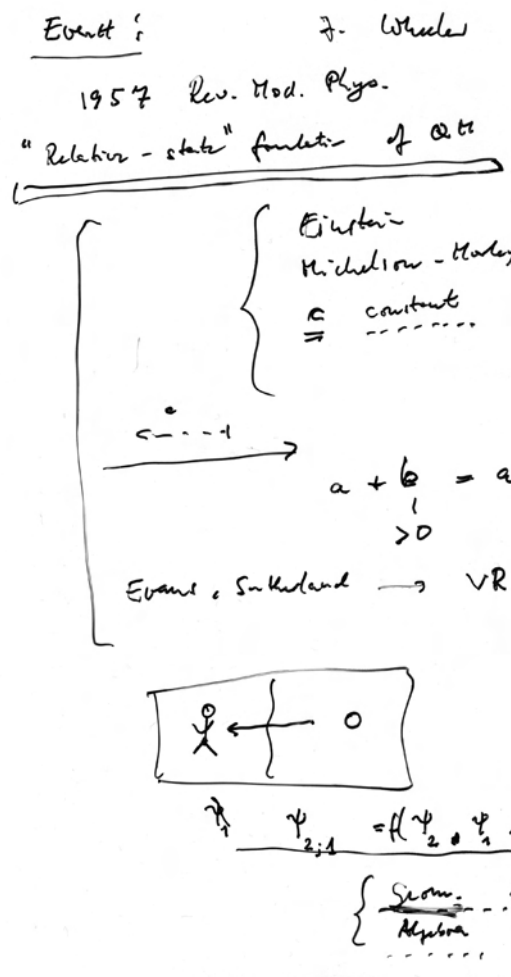 Everett: J. Wheeler
1957 Rev. Mod. Phys.
"Relative-state" formulation of QM
Einstein
Michelson - Morley
c constant
a + b = a
>0
Evans, Sutherland → VR
ψ₁ ψ₂;₁ = f(ψ₂, ψ₁
Geom.
Algebra